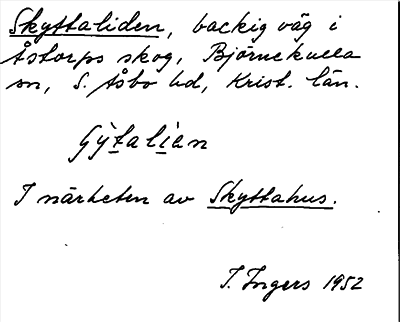 Skyttaliden, backig väg i
Åstorps skog, Björnekulla
sn, S. Åsbo hd, Krist. län.
I närheten av Skyttahus.
I. Ingers 1952